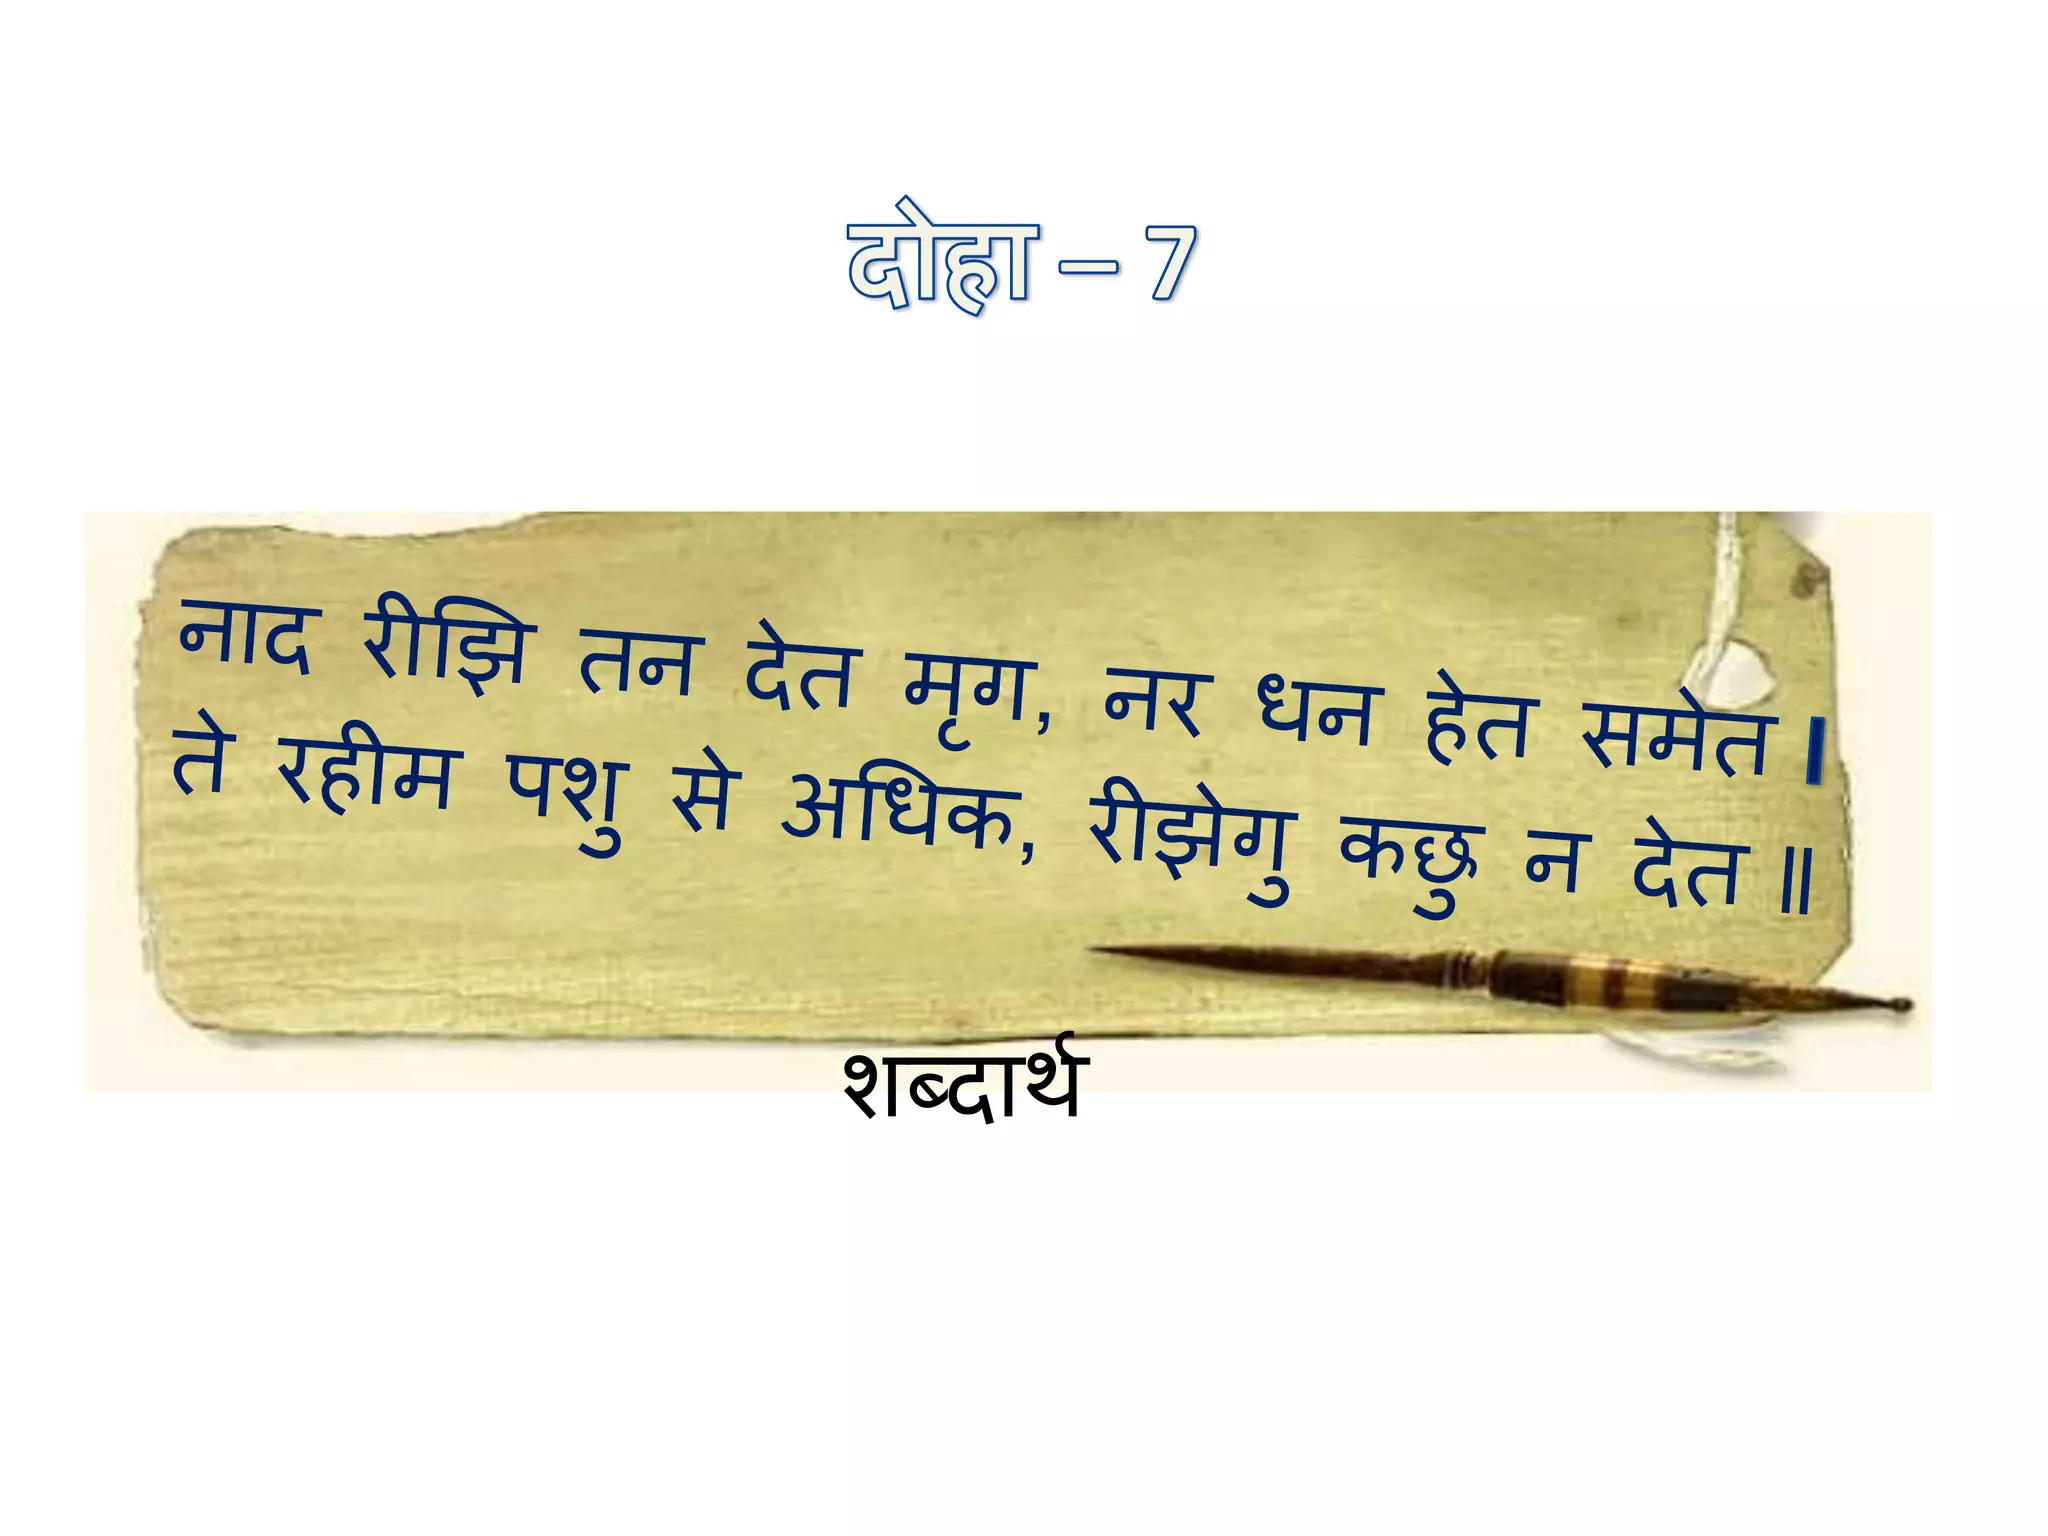 दोहा – 7
नाद रीझि तन देत मृग, नर धन हेत समेत।
ते रहीम पशु से अधिक, रीझेगु कछु न देत॥
शब्दार्थ